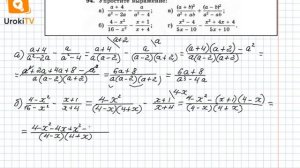 UrokiTV
94. Упростите выражение:
а) (a+4)/(a²-2a) - a/(a²-4);
в) (a+b)²/(a²-ab) +
б) (4-x²)/(16-x²) - (x+1)/(x+4);
а) (a+4)/(a²-2a) - a/(a²-4) = (a+4)/(a(a-2)) - a/((a-2)(a+2)) = ((a+4)(a+2) - a²)/(a(a-2)(a+2)) =
= (a²+2a+4a+8-a²)/(a(a-2)(a+2)) = (6a+8)/(a(a²-4)) = (6a+8)/(a³-4a)
б) (4-x²)/(16-x²) - (x+1)/(x+4) = (4-x²)/((4-x)(4+x)) - (x+1)/(x+4) = (4-x²-(x+1)(4-x))/((4-x)(4+x)) =
= (4-x²-4x+x²-)/((4-x)(4+x))